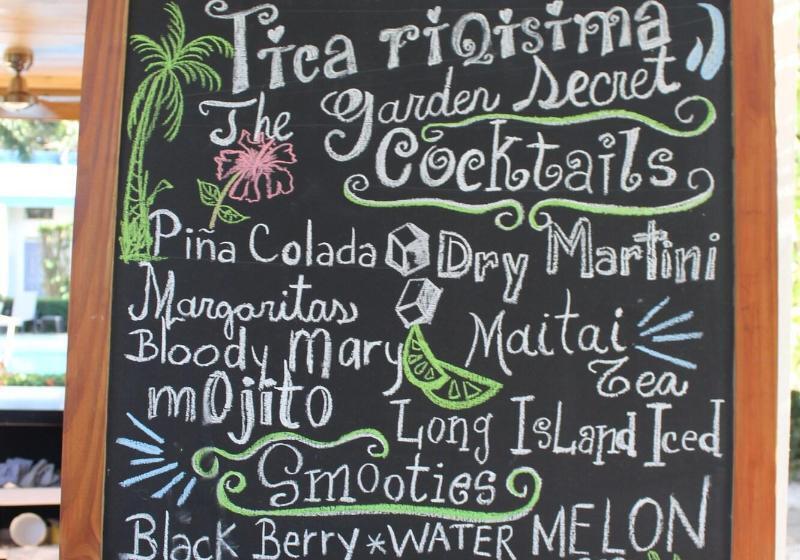 Tica riQisima
The garden Secret
Cocktails
Piña Colada Dry Martini
Margaritas
Maitai
Bloody Mary
Tea
mOjito
Long IsLand Iced
Smooties
Black Berry *WATER MELON